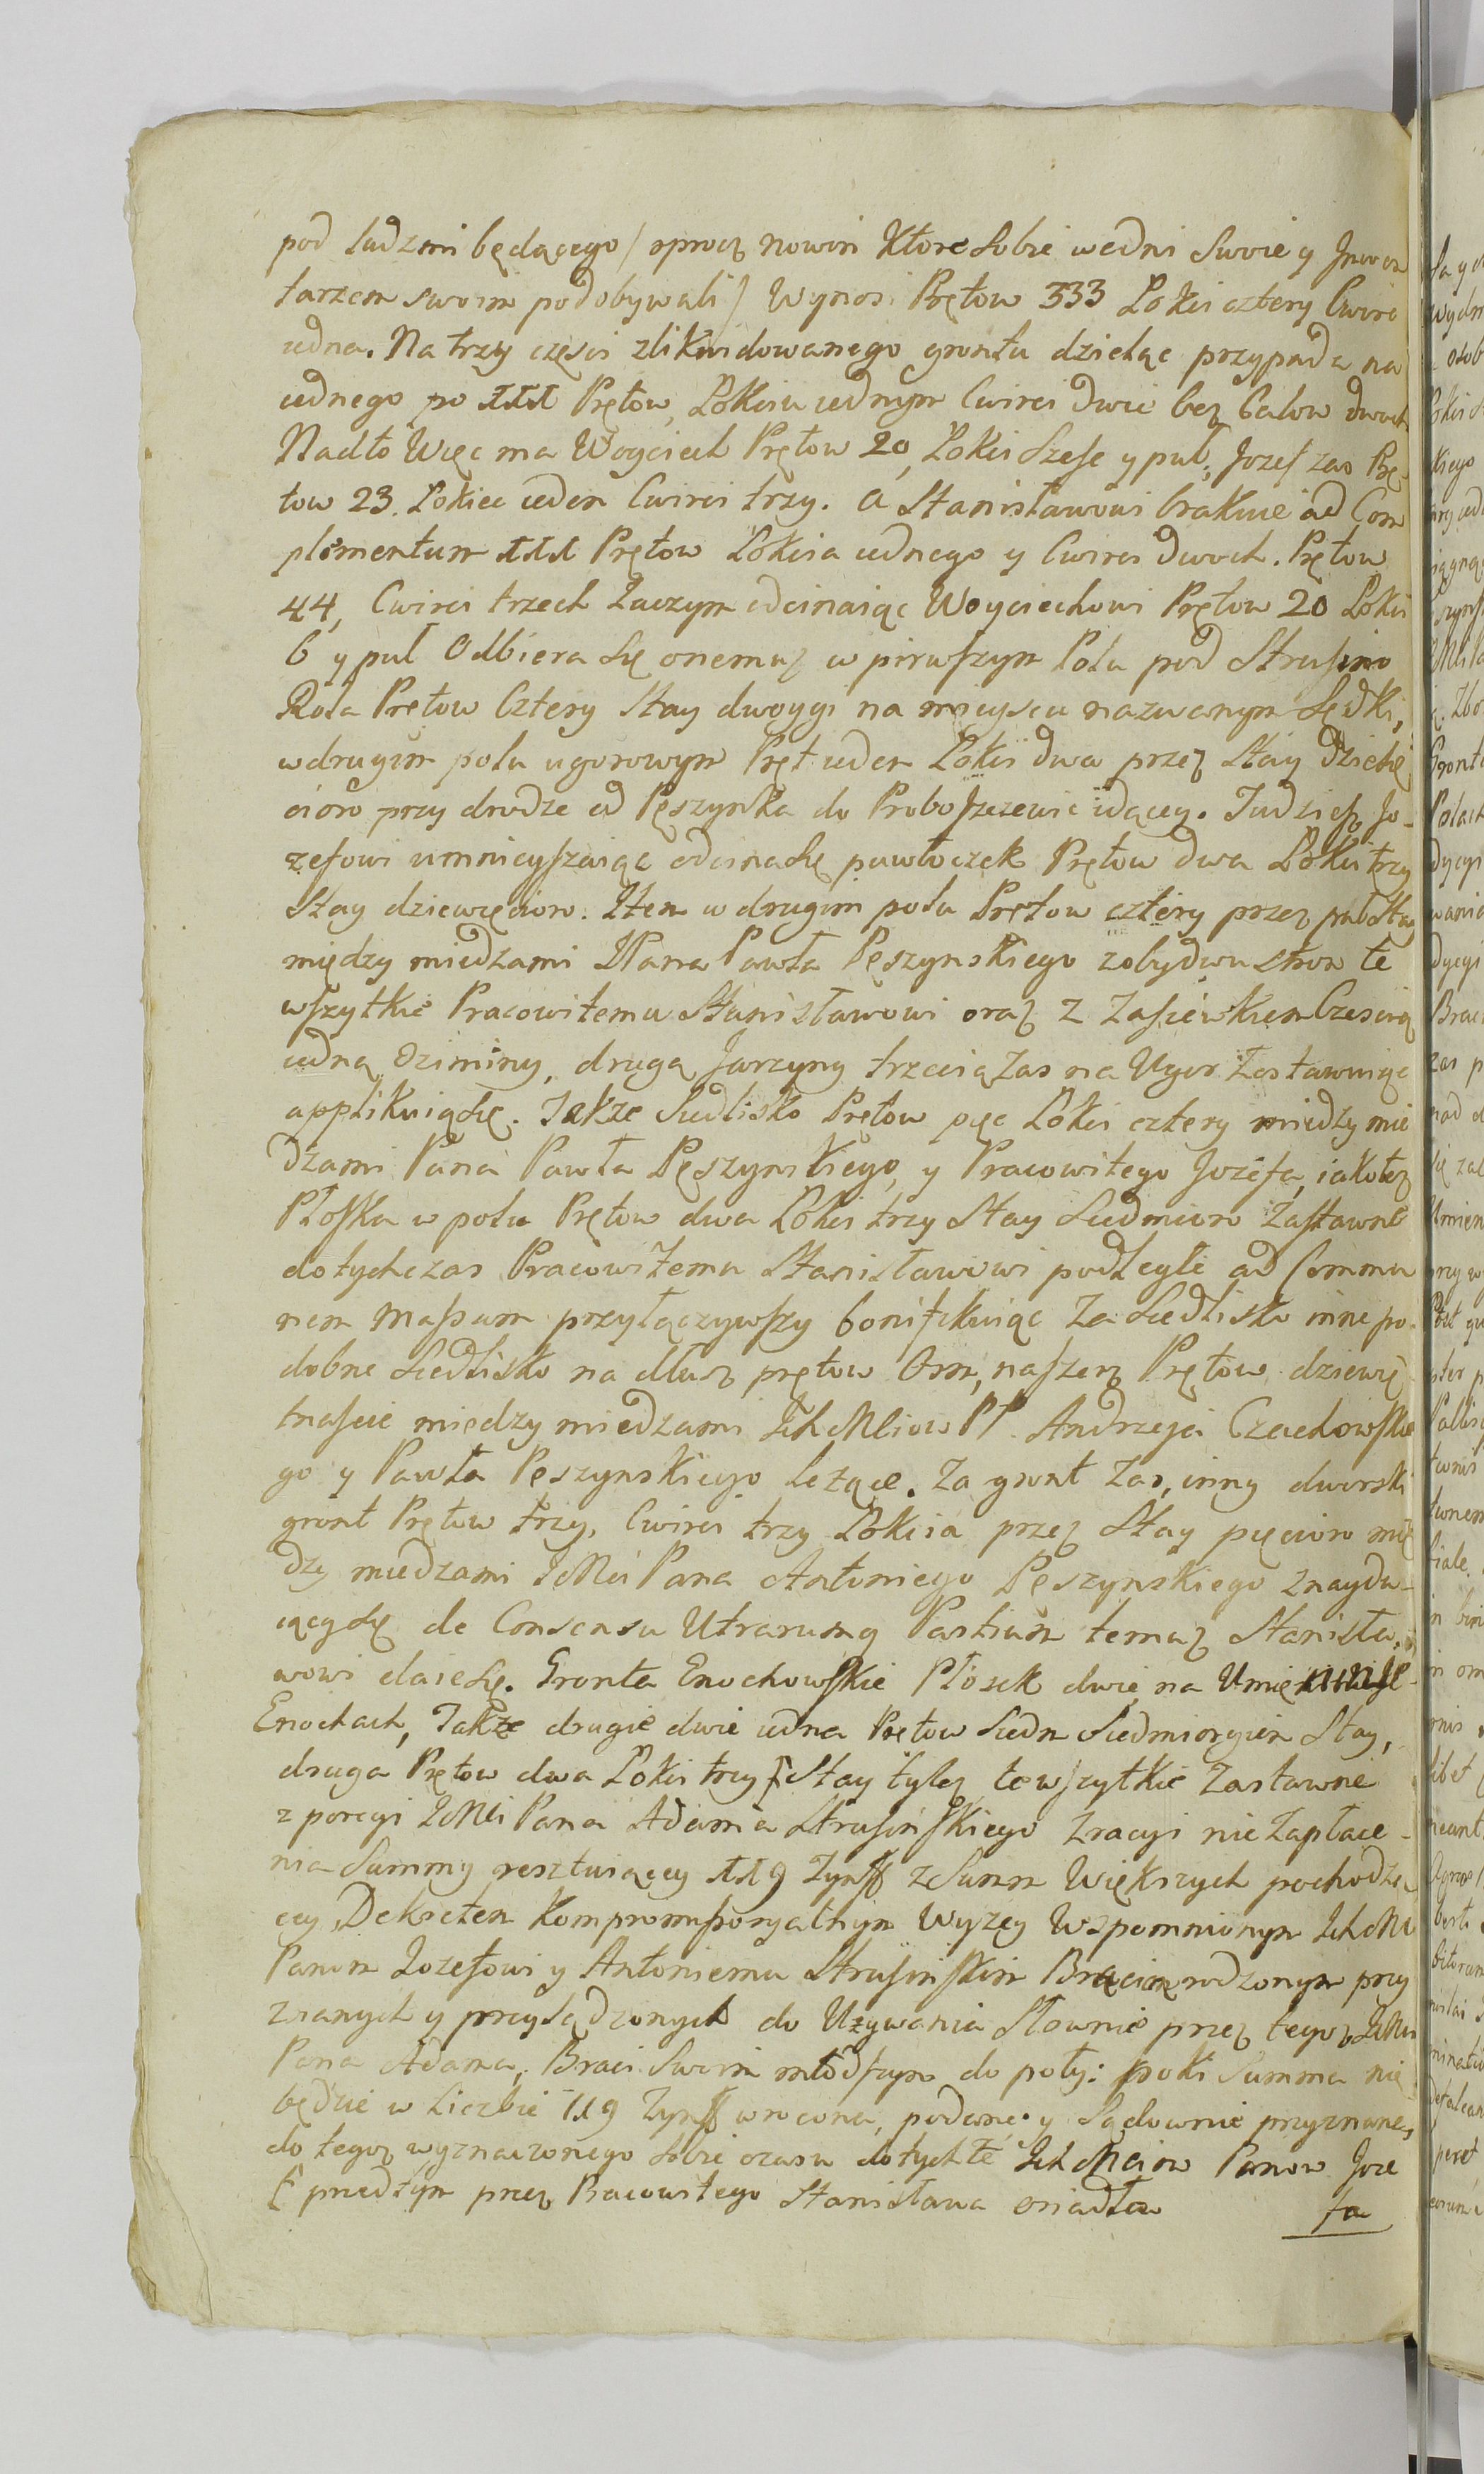 pod ludzmi będącego / oprocz nowin Ktore sobie wedni Swoie y Inwen
tarzem swoim podobywali / Wynosi Prętow 333 Lokci cztery Cwirc
iedna. Na trzy częsci zlikwidowanego grontu dzieląc przypada na
iednego po 111 Prętow, Lokciu iednym Cwirci dwie bez Calow dwoch
Nadto Więc ma Woyciech Prętow 20, Lokci Szesc y pul, Jozef zas Prę-
tow 23. Lokiec ieden Cwirci trzy. a Stanisławowi brakuie ad Com
plementum 111 Prętow Lokcia iednego y Cwirci dwoch. Prętow
44, Cwirci trzech Zaczym odcinaiąc Woyciechowi Prętow 20 Lokci
6 y pul Odbiera się onemuz w pirwszym Polu pod Strusino
Rola Prętow Cztery Stay dwoygi na mieyscu nazwanym Sędki,
w drugim polu ugorowym Pręt ieden Lokci dwa przez Stay Dziesię
cioro przy drodze od Pęszynka do Proboszczewic idącey. Tudziesz Jo-
zefowi umnieyszaiąc odcina się pawłoczek Prętow dwa Lokci trzy
Stay dziewięcioro. Item w drugim polu Prętow cztery przez pul Stay
między miedzami JPana Pawła Pęszynskiego z obydwu stron te
wszytkie Pracowitemu Stanisławowi oraz z Zasiewkiem Czescią
iedną Oziminy, drugą Jarzyny trzecią Zas na Ugor Zostawuiąc
applikuią się. Takze Siedlisko Prętow pięc Lokci cztery między mie
dzami Pana Pawła Pęszynskiego, y Pracowitego Jozefa, iakotez
Płoska w polu Prętow dwa Lokci trzy Stay Siedmioro Zastawne
dotychczas Pracowitemu Stanisławowi podległe ad Commu
nem Massam przyłączywszy bonifikuiąc Za Siedlisko inne po-
dobne Siedlisko na dłusz prętow Osm, na szerz Prętow dziewię
tnascie między miedzami Ich Mciow PP. Andrzeja Czachowskie
go y Pawła Pęszynskiego leżące. Za gront Zas, inny dworski
gront Prętow trzy, Cwirci trzy Lokcia przez Stay pięcioro mię
dzy miedzami JeMci Pana Antoniego Pęszynskiego Znaydu-
iący się de Consensu Utrarumq Partium temuz Stanisła-
wowi daie się. Gronta Enochowskie Płosek dwie na
Enochach, Takze drugie dwie iedna Prętow Siedm Siedmiorgiem Stay,
druga Prętow dwa Lokci trzy Stay tylez te wszytkie Zastawne
z poręgi JeMci Pana Adama Strusinskiego Zracyi nie Zapłace-
nia Summy resztuiącey 119 Zyn z Summ Większych pochodzą
cey, Dekretem Kompromissoryalnym Wyzey Wspomnionym Ich Mc
Panom Jozefowi y Antoniemu Strusinskim Braciom rodzonym przy
znanych y przysądzonych do Używania Słownie przez tegoz JeMci
Pana Adama, Braci Swoim młodszym do poty: poki Summa nie
będzie w Liczbie 119 Zyn wrocona, podane y Sądownie przyznane,
do tegoz wyznaczonego sobie czasu dotychte Ich Mciow Panow Joze
[ przedtym przez Pracowitego Stanisława osiadła
fa